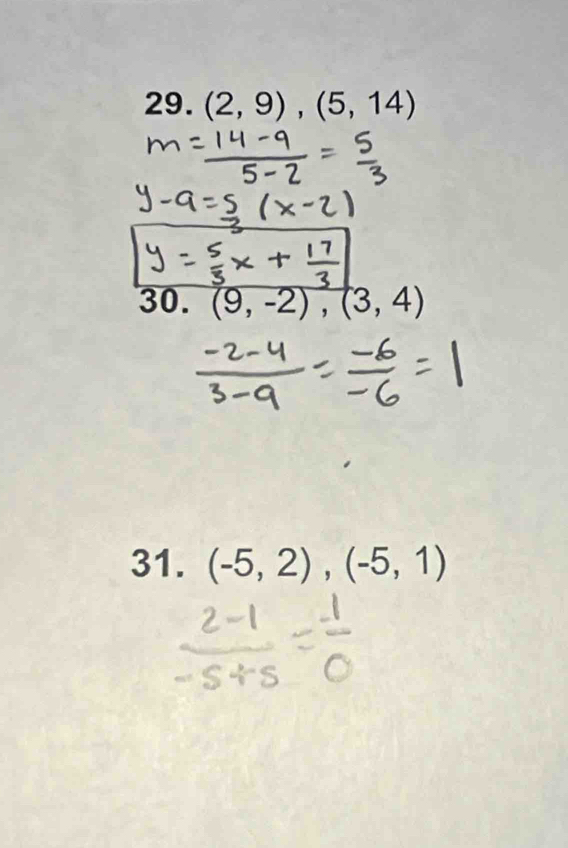 29. (2, 9) , (5, 14)
m = (14 - 9)/(5 - 2) = 5/3
y - 9 = 5/3 (x - 2)
y = 5/3 x + 17/3
30. (9, -2) , (3, 4)
(-2 - 4)/(3 - 9) = -6/-6 = 1
31. (-5, 2) , (-5, 1)
(2 - 1)/(-5 + 5) = 1/0